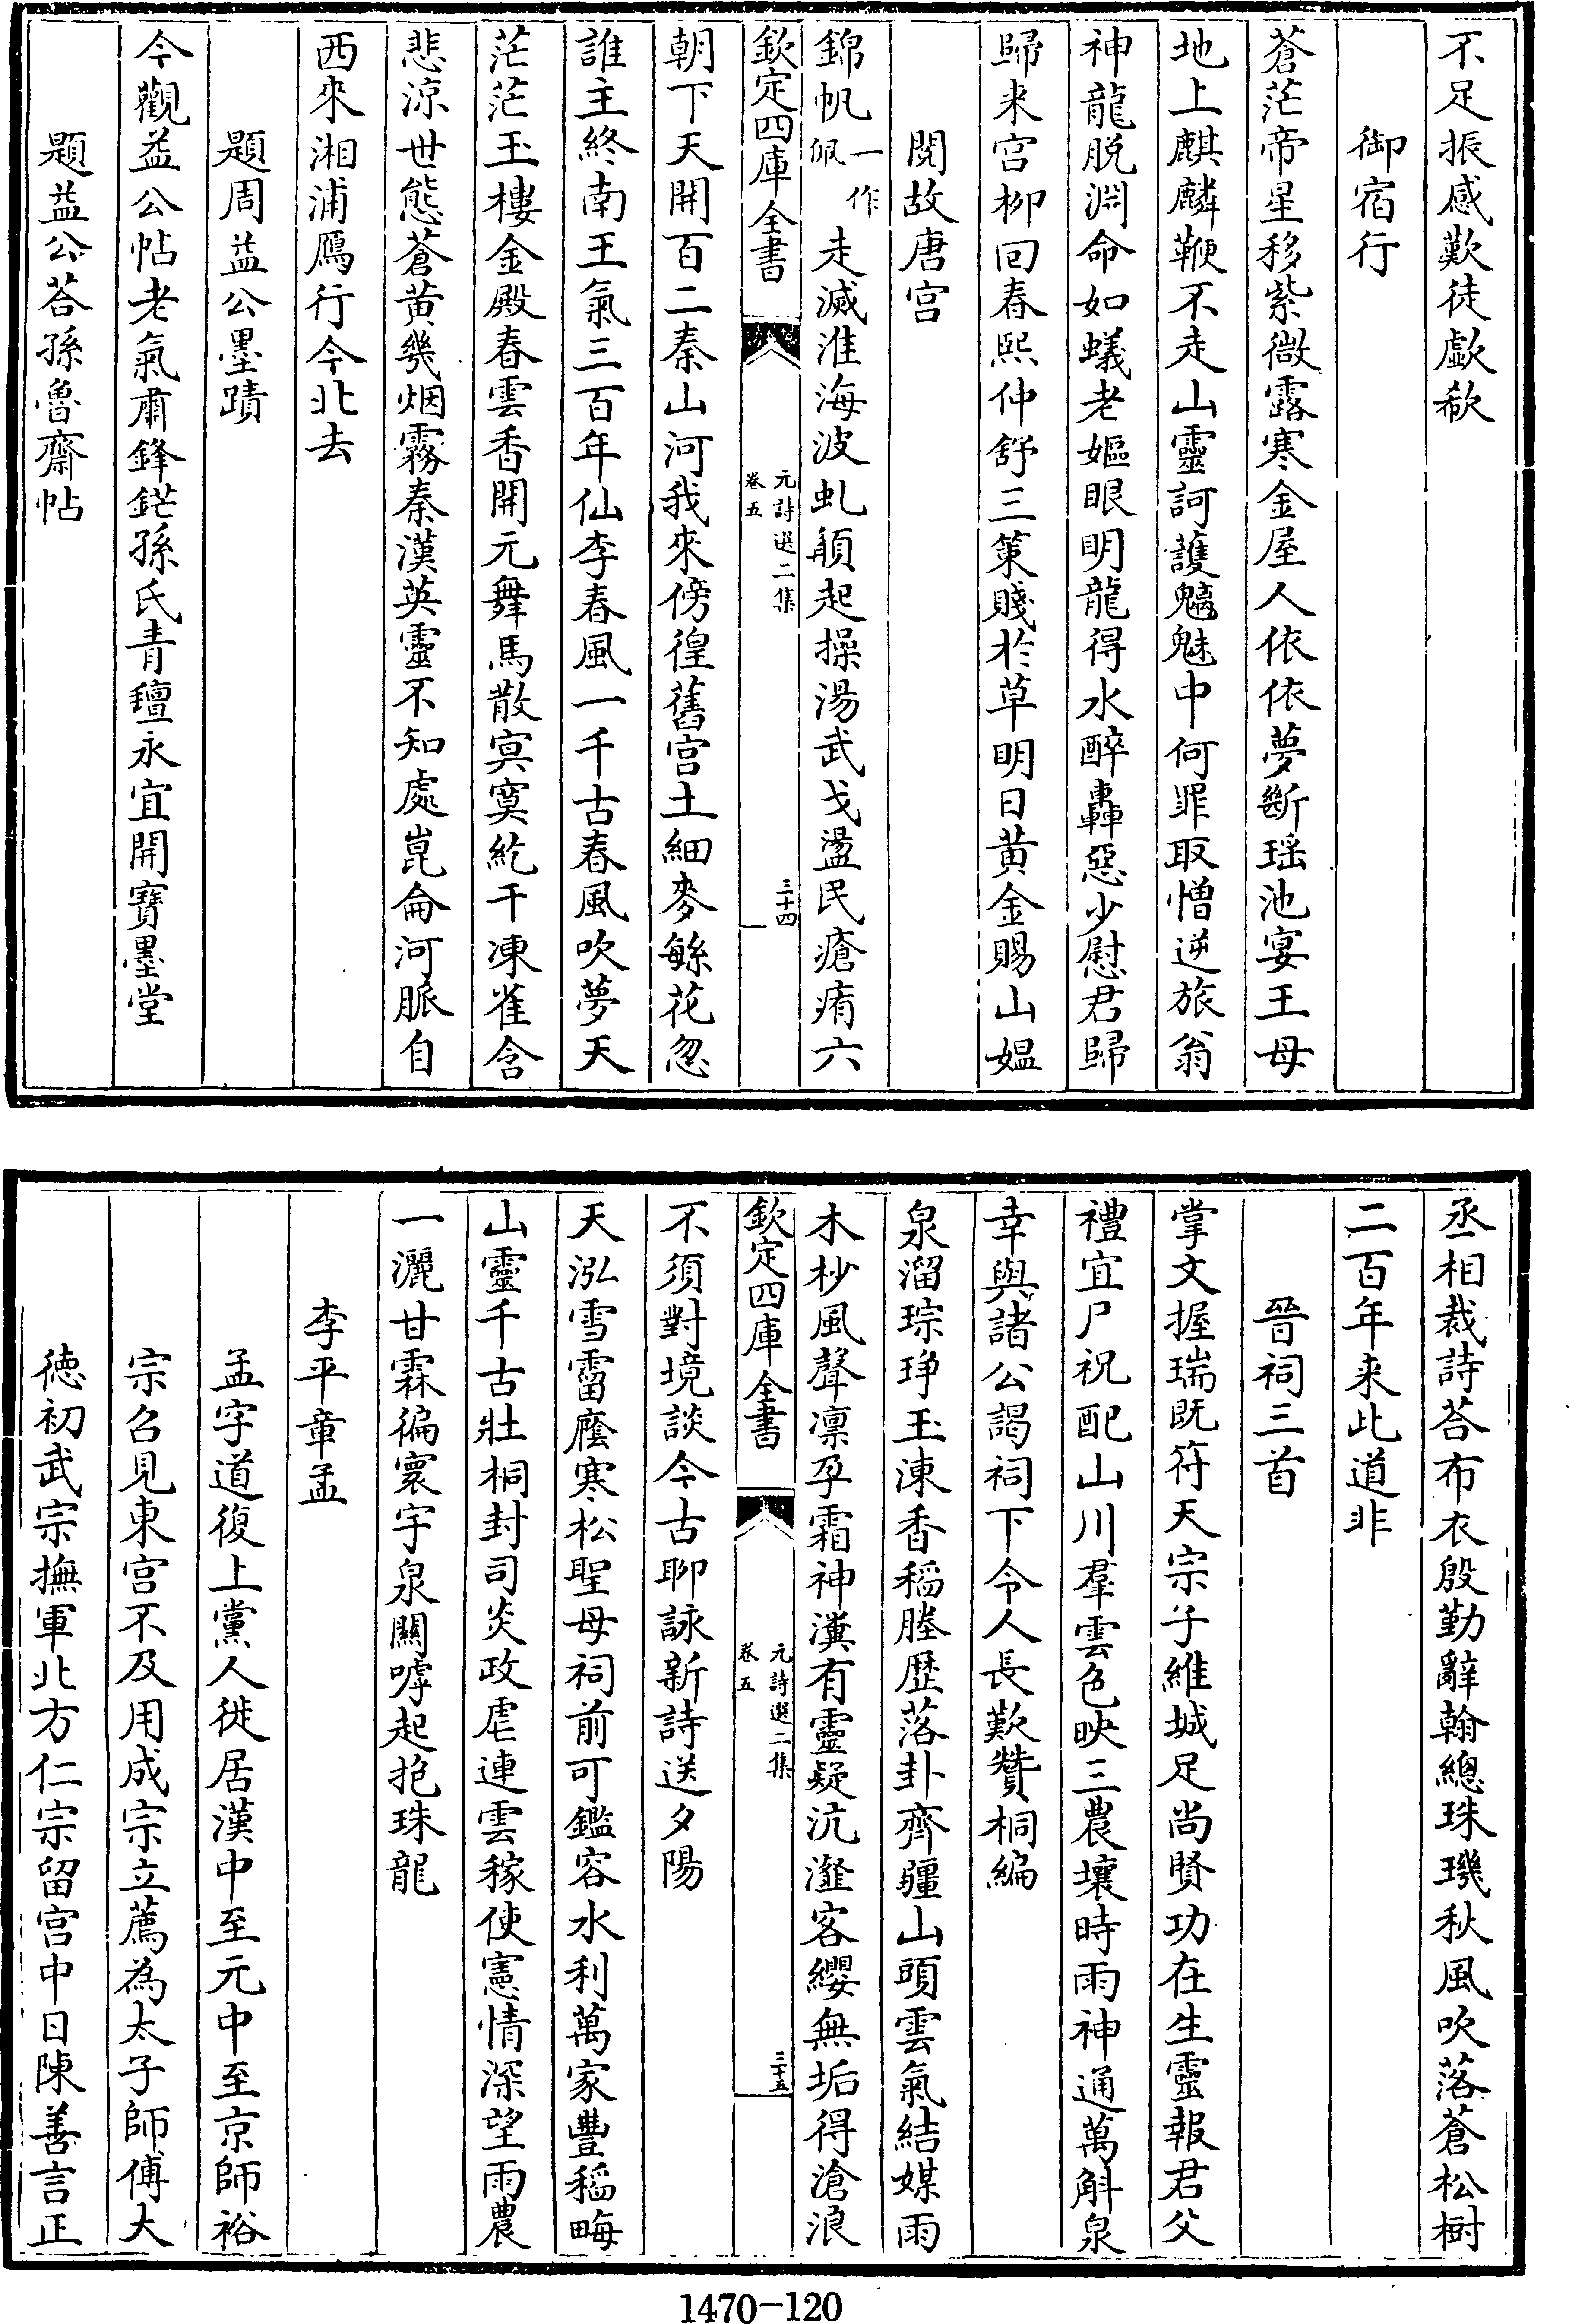 不足振感歎徒歔欷
御宿行
蒼茫帝星移紫微露寒金屋人依依夢斷瑶池宴王母
地上麒麟鞭不走山靈訶護魑魅中何罪取憎逆旅翁
神龍脱淵命如蟻老嫗眼明龍得水醉轟惡少慰君歸
歸来宫柳回春熙仲舒三策賤於草明日黄金賜山媪
閲故唐宫
錦帆一作佩走滅淮海波虬鬚起操湯武戈盪民瘡痏六
欽定四庫全書
元詩選二集
卷五
三十四
朝下天開百二秦山河我來傍徨舊宫土細麥鯀花忽
誰主終南王氣三百年仙李春風一千古春風吹夢天
茫茫玉樓金殿春雲香開元舞馬散冥寞紇干凍雀含
悲凉世態蒼黄幾烟霧秦漢英靈不知處崑侖河脈自
西來湘浦鴈行今北去
題周益公墨蹟
今觀益公帖老氣肅鋒鋩孫氏青氊永宜開寶墨堂
題益公荅孫魯齋帖
丞相裁詩荅布衣殷勤辭翰總珠璣秋風吹落蒼松樹
二百年来此道非
晉祠三首
掌文握瑞既符天宗子維城足尚賢功在生靈報君父
禮宜尸祝配山川羣雲色映三農壤時雨神通萬斛泉
幸與諸公謁祠下令人長歎贊桐編
泉溜琮琤玉涷香稻塍歴落卦齊疆山頭雲氣結媒雨
木杪風聲凛孕霜神瀵有靈疑沆瀣客纓無垢得滄浪
欽定四庫全書
元詩選二集
卷五
三十五
不須對境談今古聊詠新詩送夕陽
天泓雪霤廕寒松聖母祠前可鑑容水利萬家豐稻畮
山靈千古壯桐封司炎政虐連雲稼使憲情深望雨農
一灑甘霖徧寰宇泉關嘑起抱珠龍
李平章孟
孟字道復上黨人徙居漢中至元中至京師裕
宗召見東宫不及用成宗立薦為太子師傅大
徳初武宗撫軍北方仁宗留宫中日陳善言正
1470-120